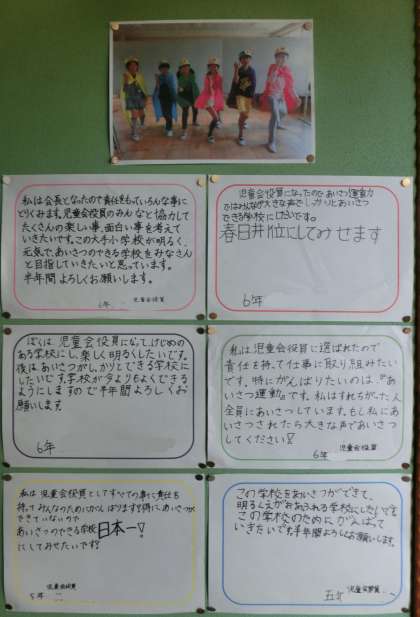 私は会長となったので責任をもっていろんな事に
とりくみます。児童会役員のみんなと協力して
たくさんの楽しい事、面白い事を考えて
いきたいです。この大手小学校が明るく、
元気で、あいさつのできる学校をみなさん
と目指していきたいと思っています。
半年間よろしくお願いします。
児童会役員
6年
児童会役員になったので、あいさつ運動力
ではみんなが大きな声でしっかりとあいさつ
できる学校にしたいです。
春日井1位にしてみせます
6年
ぼくは、児童会役員になって、けじめの
ある学校にし、楽しく明るくしたいです。
後は、あいさつがしっかりとできる学校に
したいです。学校が今よりもよくできる
ようにしますので半年間よろしくお
願いします
6年
私は、児童会役員に選ばれたので
責任を持って仕事に取り組みたい
です。特にがんばりたいのは、『あ
いさつ運動』です。私はすれちがった人
全員にあいさつしています。もし私にあ
いさつされたら大きな声であいさつ
してください!
児童会役員
6年
私は、児童会役員としてすべての事に責任を
持ってみんなのためにがんばります!特に、あいさつが
できていないので
あいさつのできる学校日本一!
にしてみせたいです!
児童会役員
5年
この学校をあいさつができて、
明るくえがおあふれる学校にしたいです。
この学校のためにがんばって
いきたいです。半年間よろしくお願いします。
児童会役員
五年